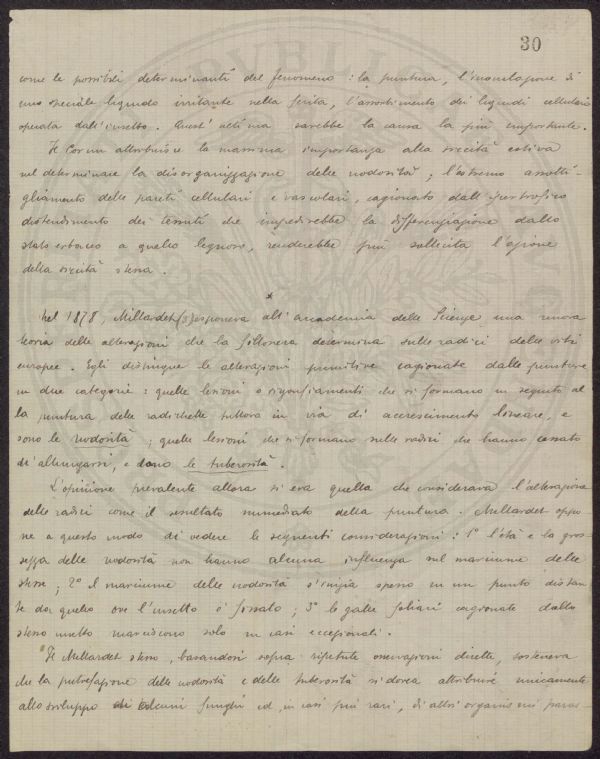 30
come le possibili determinanti del fenomeno: la puntura, l'inoculazione di
uno speciale liquido irritante nella ferita, l'assorbimento dei liquidi cellulari
operata dall'insetto. Quest'ultima sarebbe la causa la più importante.
Il Cornu attribuisce la massima importanza alla siccità estiva
nel determinare la disorganizzazione delle nodosità; l'estremo assotti-
gliamento delle pareti cellulari e vascolari, cagionato dall'ipertrofico
distendimento dei tessuti che impedirebbe la differenziazione dallo
stato erbaceo a quello legnoso, renderebbe più sollecita l'azione
della siccità stessa.
Nel 1878, Millardet (3) esponeva all'accademia delle Scienze una nuova
teoria delle alterazioni che la fillossera determina sulle radici delle viti
europee. Egli distingue le alterazioni primitive cagionate dalle punture
in due categorie: quelle lesioni o rigonfiamenti che si formano in seguito al
la puntura delle radichette tuttora in via di accrescimento lineare, e
sono le nodosità; quelle lesioni che si formano sulle radici che hanno cessato
di allungarsi, e sono le tuberosità.
L'opinione prevalente allora si era quella che considerava l'alterazione
delle radici come il resultato immediato della puntura. Millardet oppo-
ne a questo modo di vedere le seguenti considerazioni: 1° l'età e la gros-
sezza delle nodosità non hanno alcuna influenza sul marciume delle
stesse; 2° il marciume delle nodosità s'inizia spesso in un punto distan-
te da quello ove l'insetto è fissato; 3° le galle foliari cagionate dallo
stesso insetto marciscono solo in casi eccezionali.
Il Millardet stesso, basandosi sopra ripetute osservazioni dirette, sosteneva
che la putrefazione delle nodosità e delle tuberosità si dovea attribuire unicamente
allo sviluppo di alcuni funghi ed, in casi più rari, di altri organismi paras-